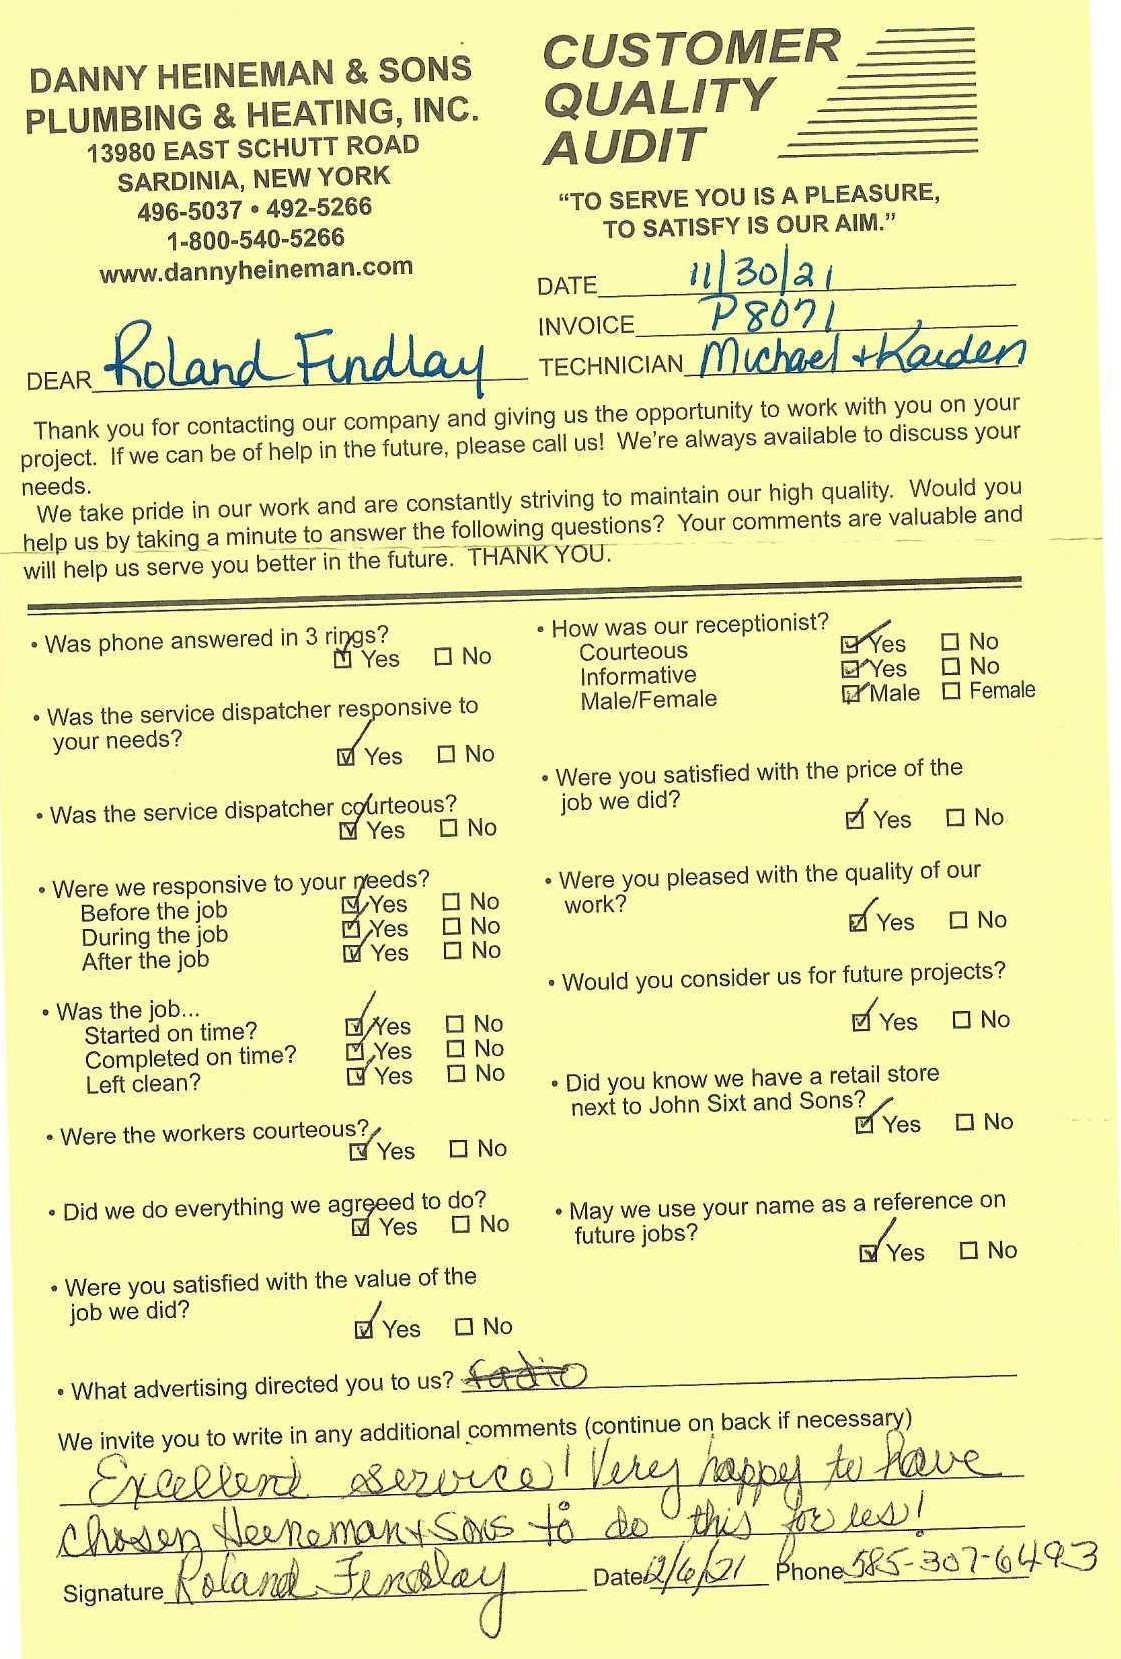 DANNY HEINEMAN & SONS
PLUMBING & HEATING, INC.
13980 EAST SCHUTT ROAD
SARDINIA, NEW YORK
496-5037 • 492-5266
1-800-540-5266
www.dannyheineman.com
CUSTOMER
QUALITY
AUDIT
“TO SERVE YOU IS A PLEASURE,
TO SATISFY IS OUR AIM.”
DATE 11/30/21
INVOICE P8071
TECHNICIAN Michael + Kaiden
DEAR Roland Findlay
Thank you for contacting our company and giving us the opportunity to work with you on your
project. If we can be of help in the future, please call us! We're always available to discuss your
needs.
We take pride in our work and are constantly striving to maintain our high quality. Would you
help us by taking a minute to answer the following questions? Your comments are valuable and
will help us serve you better in the future. THANK YOU.
• Was phone answered in 3 rings?
☑ Yes ☐ No
• Was the service dispatcher responsive to
your needs?
☑ Yes ☐ No
• Was the service dispatcher courteous?
☑ Yes ☐ No
• Were we responsive to your needs?
Before the job ☑ Yes ☐ No
During the job ☑ Yes ☐ No
After the job ☑ Yes ☐ No
• Was the job...
Started on time? ☑ Yes ☐ No
Completed on time? ☑ Yes ☐ No
Left clean? ☑ Yes ☐ No
• Were the workers courteous?
☑ Yes ☐ No
• Did we do everything we agreeed to do?
☑ Yes ☐ No
• Were you satisfied with the value of the
job we did?
☑ Yes ☐ No
• How was our receptionist?
Courteous ☑ Yes ☐ No
Informative ☑ Yes ☐ No
Male/Female ☑ Male ☐ Female
• Were you satisfied with the price of the
job we did?
☑ Yes ☐ No
• Were you pleased with the quality of our
work?
☑ Yes ☐ No
• Would you consider us for future projects?
☑ Yes ☐ No
• Did you know we have a retail store
next to John Sixt and Sons?
☑ Yes ☐ No
• May we use your name as a reference on
future jobs?
☑ Yes ☐ No
• What advertising directed you to us? radio
We invite you to write in any additional comments (continue on back if necessary)
Excellent service! Very happy to have
chosen Heineman + Sons to do this for us!
Signature Roland Findlay Date 12/6/21 Phone 585-307-6493